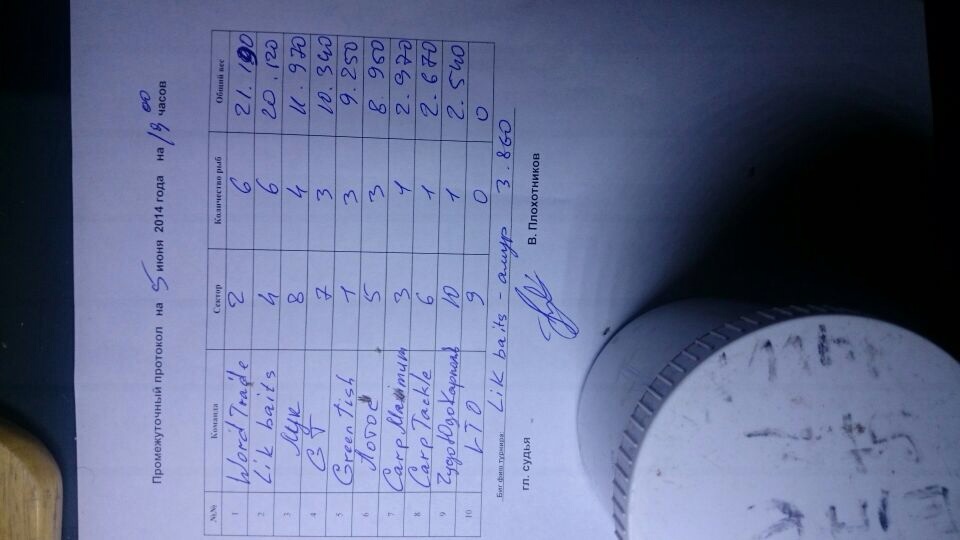 Промежуточный протокол на 5 июня 2014 года на 19 00 часов
№№ Команда Сектор Количество рыб Общий вес
1 World Trade 2 6 21.190
2 Lik baits 4 6 20.120
3 8 4 11.970
4 7 3 10.340
5 Green fish 1 3 9.250
6 Лотос 5 3 8.960
7 Carp Maximum 3 1 2.970
8 Carp Tackle 6 1 2.670
9 ЧудоЮдоКарполь 10 1 2.540
10 LTO 9 0 0
Биг фиш турнира: Lik baits - амур 3.860
гл. судья В. Плохотников